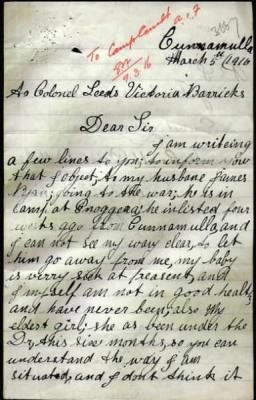 3357
To Camp Comdt A.I.F
9.3.16
Cunnamulla
March 5th/1916
As Colonel Leeds Victoria Barricks
Dear Sir
I am writeing
a few lines to you, to inform you
that I object, to my husbane James
Ryan, going to the war; he is in
camp at Enoggea, he inlisted four
weeks ago from Cunnamulla, and
I can not see my way clear, to let
him go away from me, my baby
is verry seek at preasent, and
I myself am not in good health,
and have never been, also my
eldest girl, she as been under the
Dr, this six months, so you can
understand the way I am
situated, and I dont think it